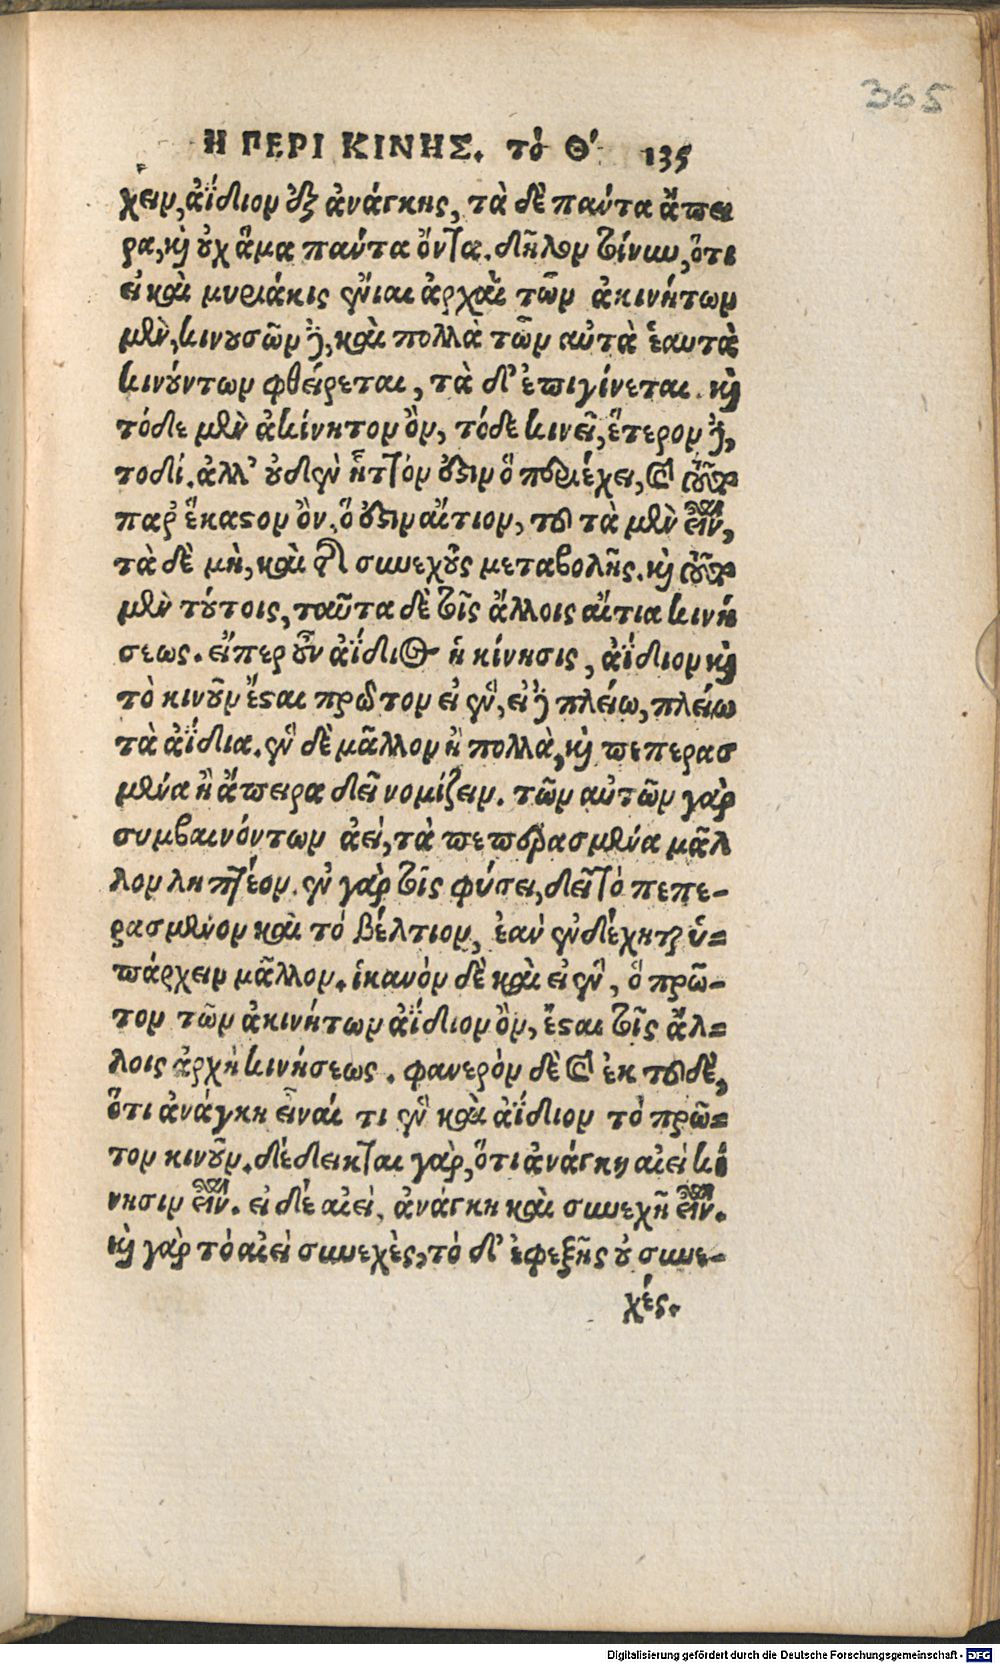 365
Η ΠΕΡΙ ΚΙΝΗΣ. τὸ Θ΄ 135
χειν, ἀΐδιον ἐξ ἀνάγκης, τὰ δὲ πάντα ἄπει
ρα, καὶ οὐχ ἅμα πάντα ὄντα. δῆλον τοίνυν, ὅτι
εἰ καὶ μυριάκις ἔνιαι ἀρχαὶ τῶν ἀκινήτων
μὲν, κινουσῶν δὲ, καὶ πολλὰ τῶν αὐτὰ ἑαυτὰ
κινούντων φθείρεται, τὰ δ' ἐπιγίνεται. καὶ
τόδε μὲν ἀκίνητον ὂν, τόδε κινεῖ, ἕτερον δὲ,
τοδί. ἀλλ' οὐδὲν ἧττόν ἐστιν ὃ περιέχει, καὶ τοῦτο
παρ' ἕκαστον ὂν, ὅ ἐστιν αἴτιον, τοῦ τὰ μὲν εἶναι,
τὰ δὲ μὴ, καὶ τῆς συνεχοῦς μεταβολῆς. καὶ τοῦτο
μὲν τούτοις, ταῦτα δὲ τοῖς ἄλλοις αἴτια κινή
σεως. εἴπερ οὖν ἀΐδιος ἡ κίνησις, ἀΐδιον καὶ
τὸ κινοῦν ἔσται πρῶτον εἰ ἓν, εἰ δὲ πλείω, πλείω
τὰ ἀΐδια. ἓν δὲ μᾶλλον ἢ πολλὰ, καὶ πεπερασ
μένα ἢ ἄπειρα δεῖ νομίζειν. τῶν αὐτῶν γὰρ
συμβαινόντων ἀεὶ, τὰ πεπερασμένα μᾶλ
λον ληπτέον. ἐν γὰρ τοῖς φύσει, δεῖ τὸ πεπε-
ρασμένον καὶ τὸ βέλτιον, ἐὰν ἐνδέχηται ὑ=
πάρχειν μᾶλλον. ἱκανὸν δὲ καὶ εἰ ἓν, ὃ πρῶ-
τον τῶν ἀκινήτων ἀΐδιον ὂν, ἔσται τοῖς ἄλ=
λοις ἀρχὴ κινήσεως. φανερὸν δὲ καὶ ἐκ τοῦδε,
ὅτι ἀνάγκη εἶναί τι ἓν καὶ ἀΐδιον τὸ πρῶ=
τον κινοῦν. δέδεικται γὰρ, ὅτι ἀνάγκη αἰεὶ κί
νησιν εἶναι. εἰ δέ αἰεὶ, ἀνάγκη καὶ συνεχῆ εἶναι.
καὶ γὰρ τὸ αἰεὶ συνεχὲς, τὸ δ' ἐφεξῆς οὐ συνε-
χές.
Digitalisierung gefördert durch die Deutsche Forschungsgemeinschaft - DFG